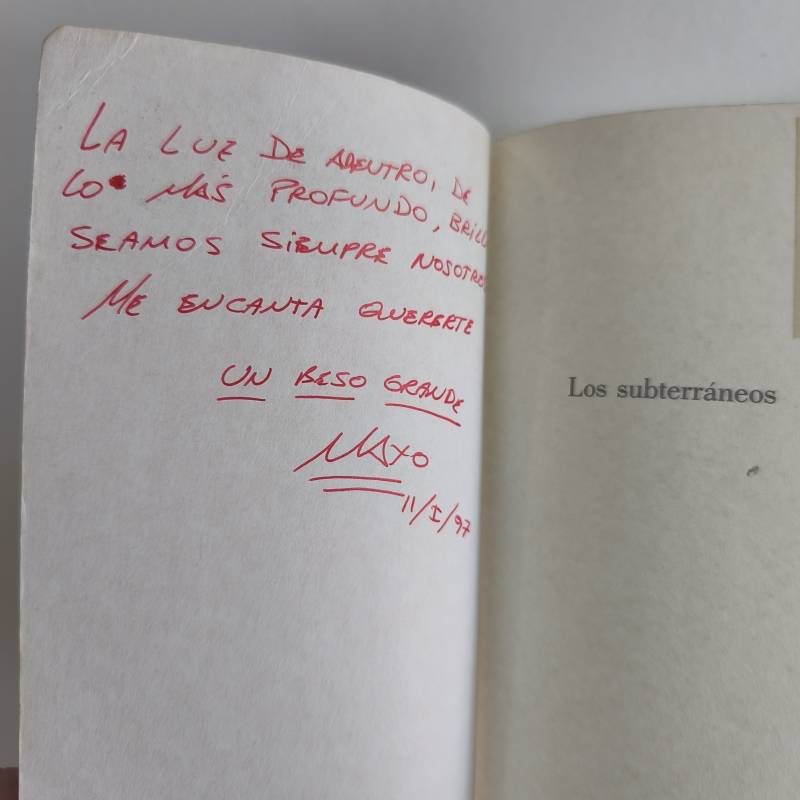 LA LUZ DE ADENTRO, DE
LO MÁS PROFUNDO,
SEAMOS SIEMPRE NOSOTROS
ME ENCANTA QUERERTE
UN BESO GRANDE
11/I/97
Los subterráneos